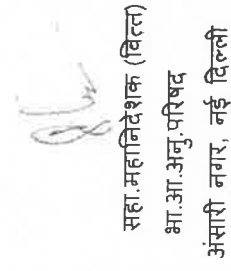 सहा.महानिदेशक (वित्त)
भा.आ.अनु.परिषद
अंसारी नगर, नई दिल्ली